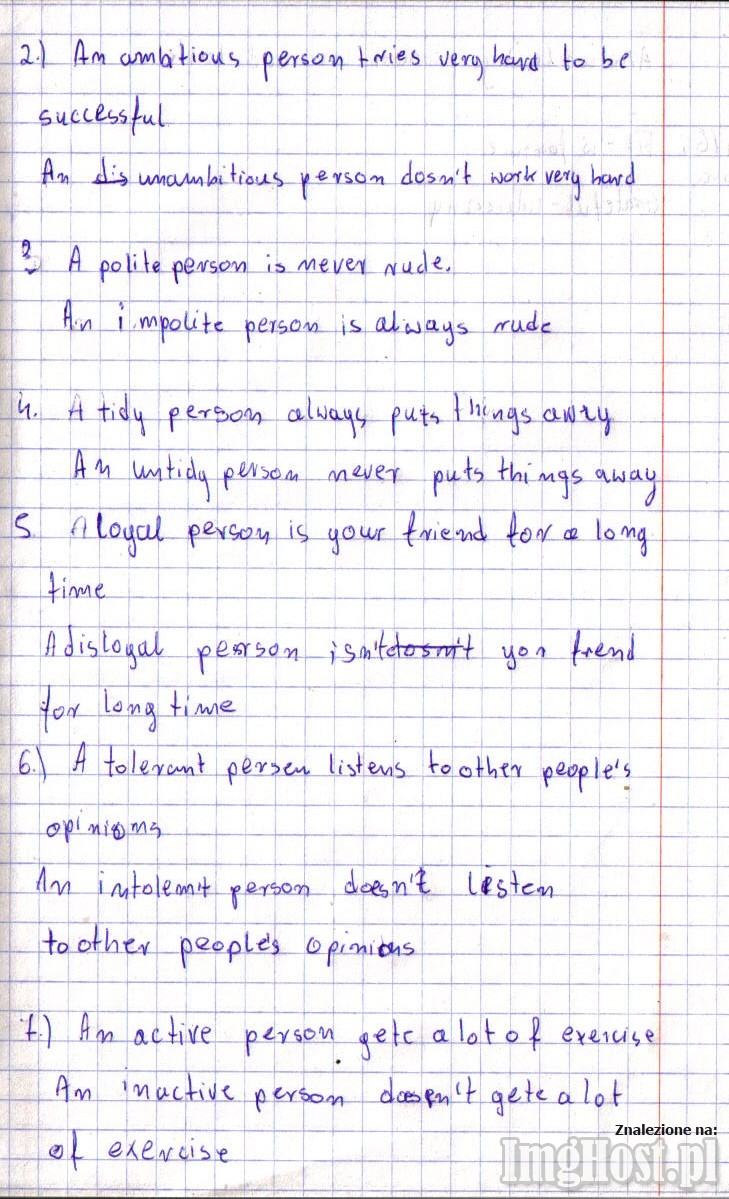 2.) An ambitious person tries very hard to be
successful
An dis unambitious person dosn't work very hard
3. A polite person is never rude.
An impolite person is always rude
4. A tidy person always puts things away
An untidy person never puts things away
5. A loyal person is your friend for a long
time
A disloyal person isn't dosn't your frend
for long time
6.) A tolerant person listens to other people's
opinions
An intolernt person doesn't listen
to other people's opinions
7.) An active person getc a lot of exercise
An inactive person doesn't getc a lot
of exercise
Znalezione na:
ImgHost.pl